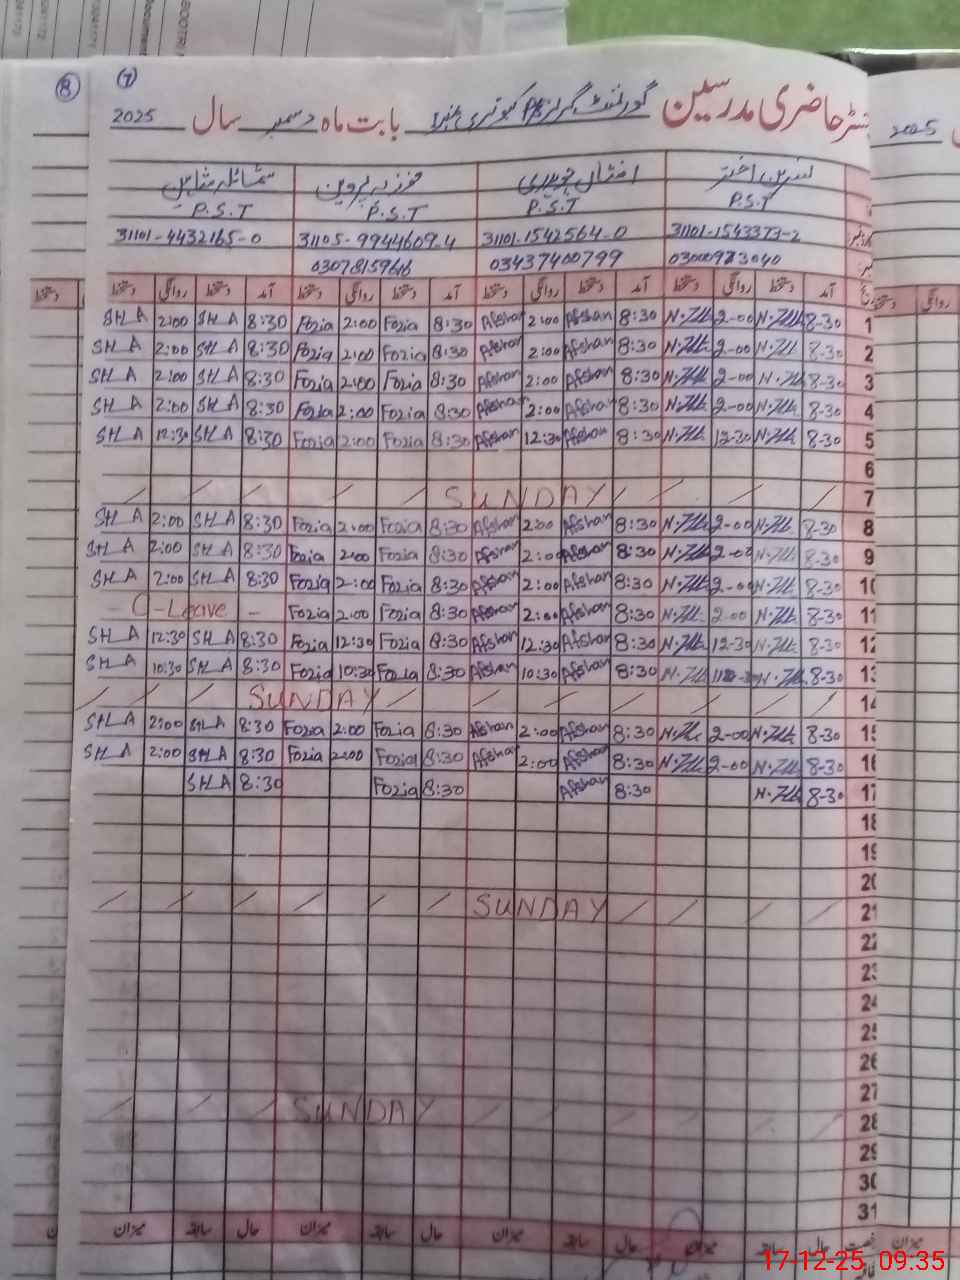 8
7
رجسٹر حاضری مدرسین گورنمنٹ گرلز بابت ماہ دسمبر سال 2025
2025
نسرین اختر
P.S.T
31101-1543373-2
P.S.T
31101-1542564-0
03437400799
فوزیہ پروین
P.S.T
31105-9944609-4
03078159616
P.S.T
31101-4432165-0
دستخط روانگی دستخط آمد دستخط روانگی دستخط آمد دستخط روانگی دستخط آمد دستخط روانگی دستخط آمد
SH_A 2:00 SH_A 8:30 Fozia 2:00 Fozia 8:30 Afshan 2:00 Afshan 8:30 2-00 8-30 1
SH_A 2:00 SH_A 8:30 Fozia 2:00 Fozia 8:30 Afshan 2:00 Afshan 8:30 2-00 8-30 2
SH_A 2:00 SH_A 8:30 Fozia 2:00 Fozia 8:30 Afshan 2:00 Afshan 8:30 2-00 8-30 3
SH_A 2:00 SH_A 8:30 Fozia 2:00 Fozia 8:30 Afshan 2:00 Afshan 8:30 2-00 8-30 4
SH_A 12:30 SH_A 8:30 Fozia 2:00 Fozia 8:30 Afshan 12:30 Afshan 8:30 12-30 8-30 5
6
SUNDAY 7
SH_A 2:00 SH_A 8:30 Fozia 2:00 Fozia 8:30 Afshan 2:00 Afshan 8:30 2-00 8-30 8
SH_A 2:00 SH_A 8:30 Fozia 2:00 Fozia 8:30 Afshan 2:00 Afshan 8:30 2-00 8-30 9
SH_A 2:00 SH_A 8:30 Fozia 2:00 Fozia 8:30 Afshan 2:00 Afshan 8:30 2-00 8-30 10
- C-Leave - Fozia 2:00 Fozia 8:30 Afshan 2:00 Afshan 8:30 2-00 8-30 11
SH_A 12:30 SH_A 8:30 Fozia 12:30 Fozia 8:30 Afshan 12:30 Afshan 8:30 12-30 8-30 12
SH_A 10:30 SH_A 8:30 Fozia 10:30 Fozia 8:30 Afshan 10:30 Afshan 8:30 8-30 13
SUNDAY 14
SH_A 2:00 SH_A 8:30 Fozia 2:00 Fozia 8:30 Afshan 2:00 Afshan 8:30 2-00 8-30 15
SH_A 2:00 SH_A 8:30 Fozia 2:00 Fozia 8:30 Afshan 2:00 Afshan 8:30 2-00 8-30 16
SH_A 8:30 Fozia 8:30 Afshan 8:30 8-30 17
18
19
20
SUNDAY 21
22
23
24
25
26
27
SUNDAY 28
29
30
31
میزان سابقہ حال میزان سابقہ حال میزان سابقہ حال میزان سابقہ حال
17-12-25, 09:35